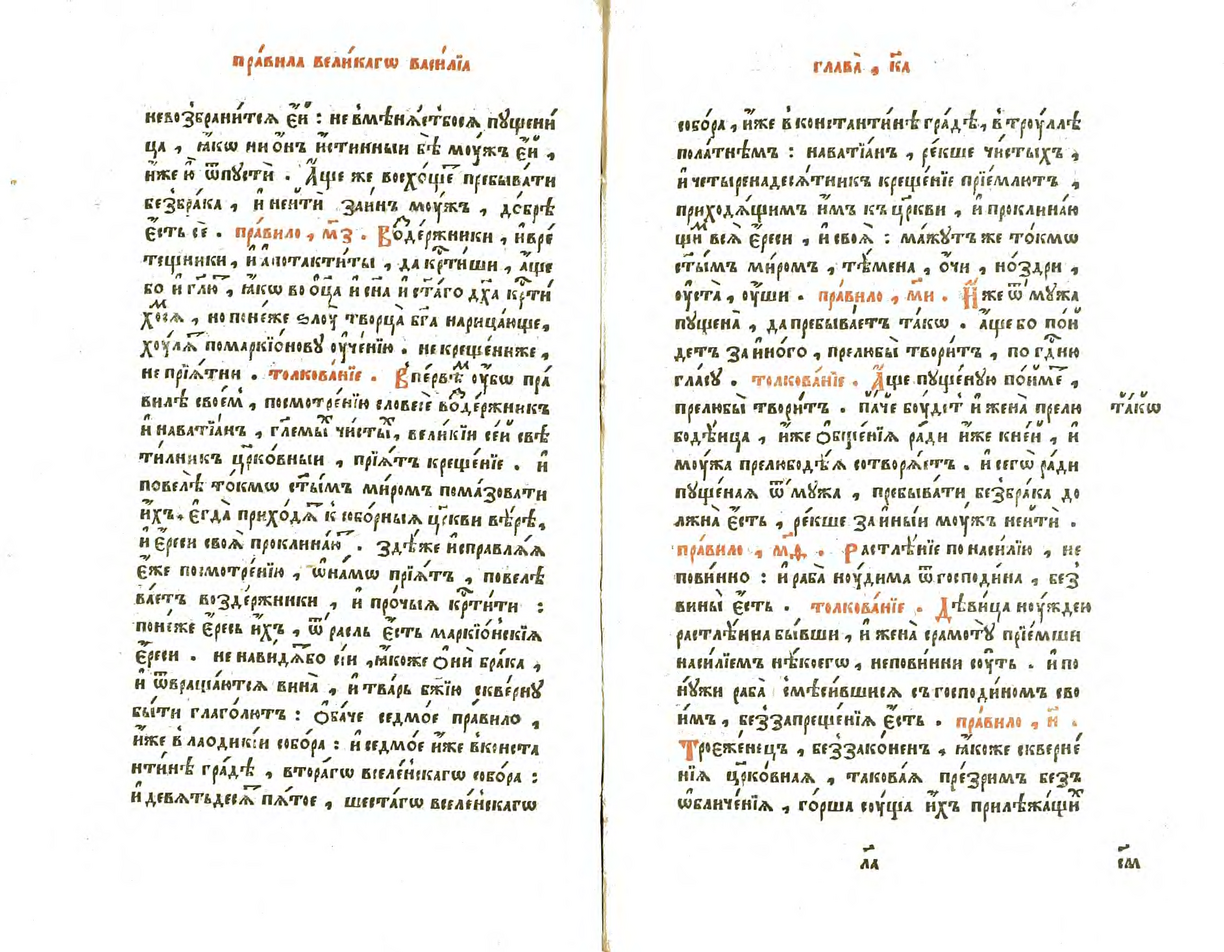 пра́вила вели́кагѡ васи́лїѧ
невозбрани́тсѧ є҆́й : не вмѣнѧ́етбосѧ пуще́ни
ца , ꙗ҆́кѡ ни ѻ҆́нъ и҆́стинныи бѣ̀ мо́ужъ є҆́й ,
и҆́же ю҆̀ ѿпустѝ . А҆́ще же восхо́щеⷮ пребыва́ти
безбра́ка , и҆ неитѝ за и҆нъ мо́ужъ , до́брѣ
є҆́сть сѐ . пра́вило , м҃з . Воⷥде́ржники , и҆ вре́
тещники , и҆ апотакти́ты , да крⷭ҇тѝши , а҆́ще
бо и҆ гл҃ю , ꙗ҆́кѡ во ѻ҆ц҃а и҆ сн҃а и҆ ст҃а́го дх҃а крⷭ҇ти́
хоⷨсѧ , но поне́же ѕлоу̀ творца̀ бг҃а нарица́юще ,
хо́улѧⷮ помаркїо́нову оу҆че́нїю . не креще́ниже ,
не прїѧ́тни . толкова́нїе . Впе́рвѣⷨ оу҆́бѡ пра́
вилѣ свое́м , посмотре́нїю словесѐ воⷥде́ржникъ
и҆ навати́анъ , гл҃емыⷯ чи́стыⷯ , вели́кїи се́й свѣ
ти́лникъ цр҃ко́вныи , прїѧ́тъ креще́нїе . и҆
повелѣ̀ то́кмѡ ст҃ы́мъ ми́ромъ пома́зовати
и҆́хъ . є҆гда̀ прихо́дѧⷮ к собо́рныѧ цр҃кви вѣ́рѣ ,
и҆ є҆́реси своѧ̀ проклина́юⷮ . здѣ́же и҆справлѧ́ѧ
є҆́же посмотре́нїю , ѻ҆на́мѡ прїѧ́тъ , повелѣ
ва́етъ возде́ржники , и҆ про́чыѧ крⷭ҇ти́ти :
поне́же є҆́ресь и҆́хъ , ѿ расль є҆́сть маркїо́нскїѧ
є҆́реси . не нави́дѧⷮбо сїи , ꙗ҆́коже ѻ҆нѝ бра́ка ,
и҆ ѿвраща́ютсѧ вина̀ , и҆ тва́рь бж҃їю скве́рну
бы́ти глаго́лютъ : ѻ҆ба́че седмо́е пра́вило ,
и҆́же в лаодикі́и собо́ра : и҆ седмо́е и҆́же вконста
нти́нѣ гра́дѣ , втора́гѡ вселе́нскагѡ собо́ра :
и҆ девѧтьдесѧⷮ пѧ́тое , шеста́гѡ вселе́нскагѡ
глава̀ , к҃а
собо́ра , и҆́же в константи́нѣ гра́дѣ , в троу́ллѣ
пола́тнѣмъ : навати́анъ , ре́кше чи́стыхъ ,
и҆ четыренадесѧ́тникъ креще́нїе прїе́млютъ ,
приходѧ́щимъ и҆́мъ къ цр҃кви , и҆ проклина́ю
щиⷨ всѧ̀ є҆́реси , и҆ своѧ̀ : ма́жутъ же то́кмѡ
ст҃ы́мъ ми́ромъ , тѣ́мена , ѻ҆́чи , но́здри ,
оу҆ста̀ , оу҆́ши . пра́вило , м҃и . И҆́же ѿ му́жа
пущена̀ , да пребыва́етъ та́кѡ . а҆́ще бо по́и
детъ за и҆но́го , прелюбы̀ твори́тъ , по гдⷭ҇ню
гла́су . толкова́нїе . А҆́ще пуще́ную по́имеⷮ ,
прелюбы̀ твори́тъ . па́че боу́дет и҆ жена̀ прелю
та́кѡ
бодѣ́ица , и҆́же ѻ҆бще́нїѧ ра́ди и҆́же кне́й , и҆
моу́жа прелюбодѣ́ѧ сотворѧ́етъ . и҆ сегѡ̀ ра́ди
пуще́наѧ ѿ му́жа , пребыва́ти безбра́ка до
лжна̀ є҆́сть , ре́кше за и҆ны́и мо́ужъ неитѝ .
пра́вило , м҃ѳ . Растлѣ́нїе по наси́лїю , не
пови́нно : и҆ раба̀ ноу́дима ѿ господи́на , без
вины̀ є҆́сть . толкова́нїе . Дѣви́ца ноу́ждею
растлѣ́нна бы́вши , и҆ жена̀ срамоту̀ прїе́мши
наси́лїемъ нѣ́коегѡ , непови́нни соу́ть . и҆ по
ну́жи раба̀ смѣси́вшисѧ съ господи́номъ сво
и҆́мъ , без̾запреще́нїѧ є҆́сть . пра́вило , н҃ .
Троеже́нецъ , без̾зако́ненъ , ꙗ҆́коже скверне́
нїѧ цр҃ко́внаѧ , такова́ѧ пре́зримъ безъ
ѡ҆бличе́нїѧ , го́рша соу́ща и҆́хъ прилѣжа́щиⷯ
л҃а
см҃